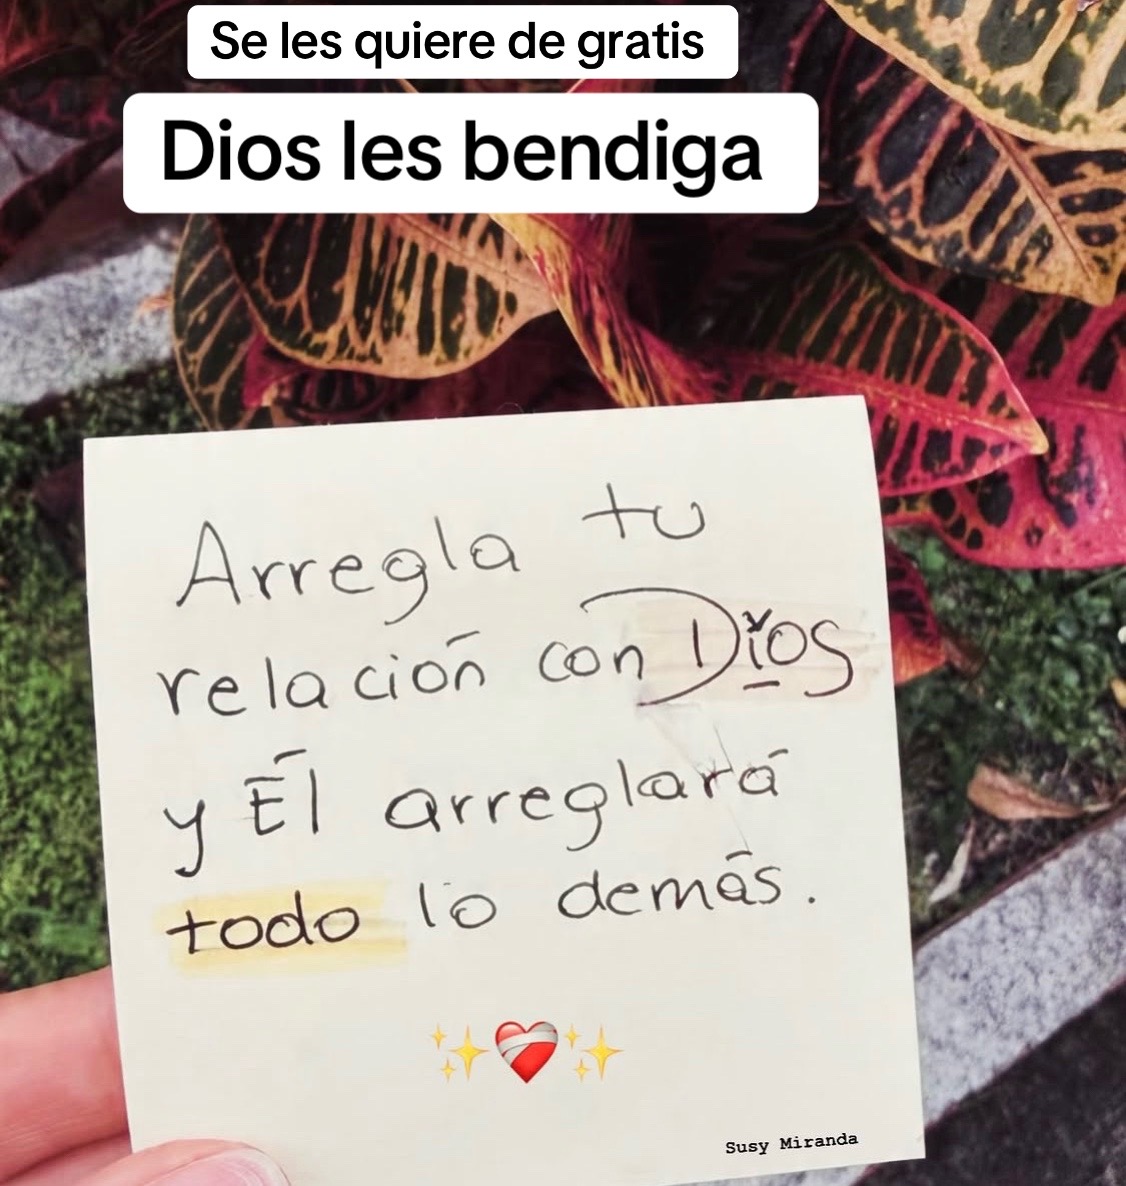 Se les quiere de gratis
Dios les bendiga
Arregla tu
relación con Dios
y Él arreglará
todo lo demás.
Susy Miranda